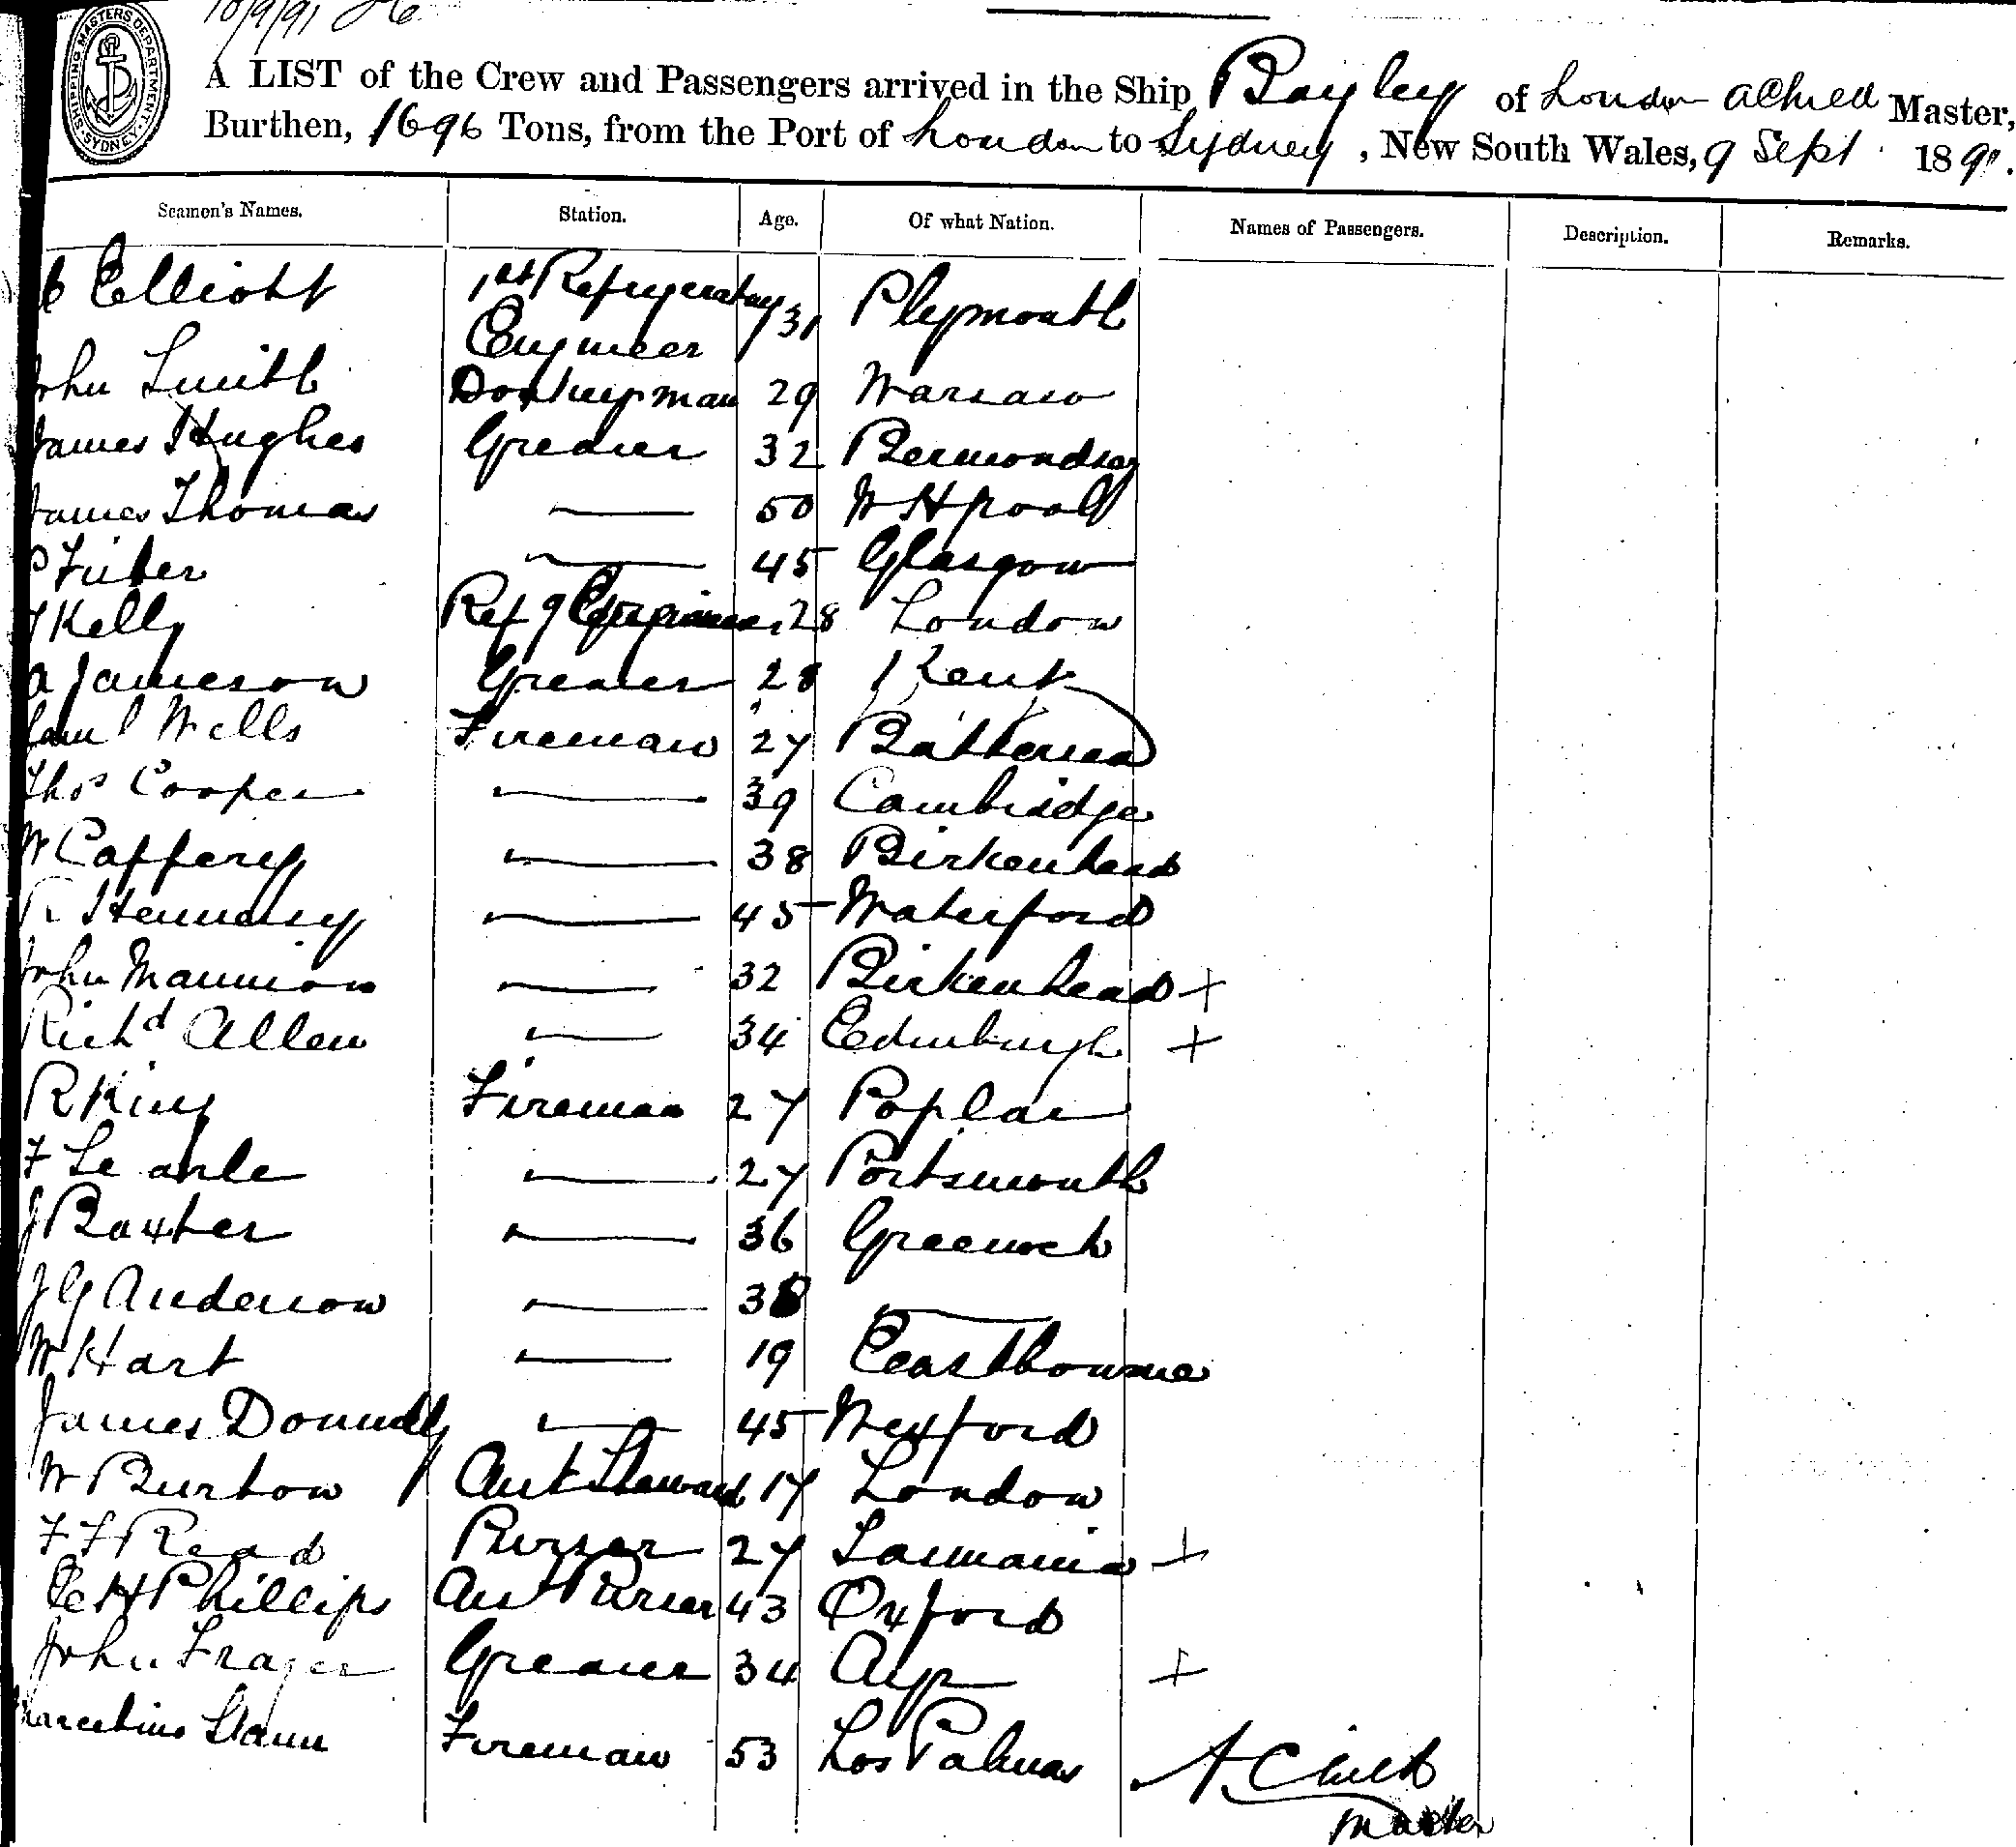 10/9/91
SHIPPING MASTERS DEPARTMENT SYDNEY
A LIST of the Crew and Passengers arrived in the Ship Bayley of London A Child Master,
Burthen, 1696 Tons, from the Port of London to Sydney, New South Wales, 9 Sept 189
Seamen's Names. Station. Age. Of what Nation. Names of Passengers. Description. Remarks.
C Elliott 1st Refrigerating Engineer 31 Plymouth
John Smith Donkeyman 29 Warsaw
James Hughes Greaser 32 Bermondsey
James Thomas — 50 W H pool
— 45 Glasgow
Kelly Refg Engineer 28 London
A Jameson Greaser 28 Kent
Saml Wells Fireman 27 Battersea
Thos Cooper — 39 Cambridge
W Caffery — 38 Birkenhead
R Hennessy — 45 Waterford
John Mannion — 32 Birkenhead +
Richd Allen — 34 Edinburgh +
R King Fireman 27 Poplar
F Searle — 27 Portsmouth
J Baxter — 36 Greenock
J G Anderson — 38 —
W Hart — 19 Eastbourne
James Donnelly — 45 Wexford
W Burton Asst Steward 17 London
F F Read Purser 27 Tasmania +
E H Phillips Asst Purser 43 Oxford
John Frazer Greaser 34 Ayr +
Fireman 53 Los Palmas
A. Child
Master